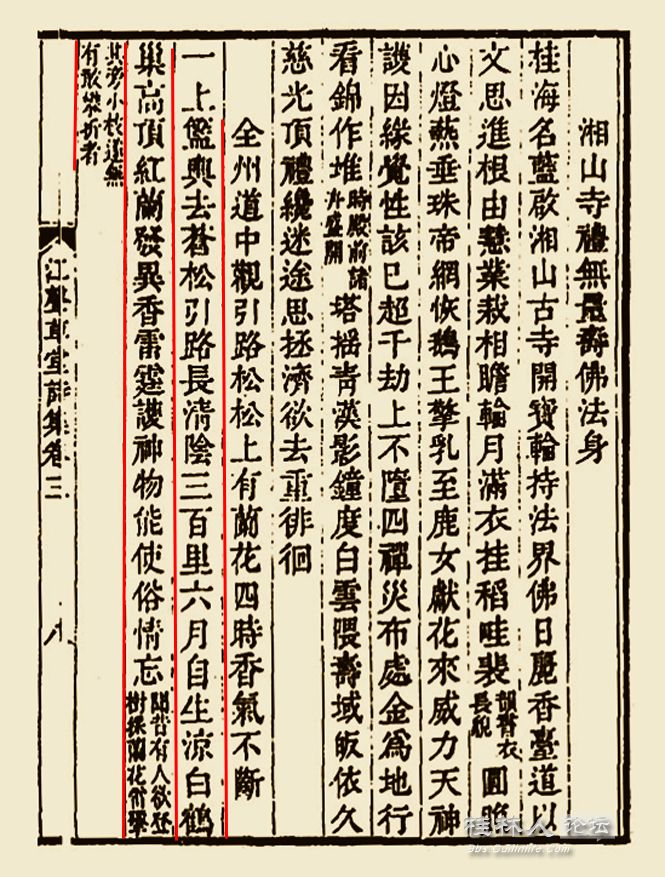 湘山寺禮無量壽佛法身
桂海名藍啟湘山古寺開寶輪持法界佛日麗香臺道以
文思進根由慧業栽相瞻輪月滿衣挂稻畦裴韻書衣長貌圓
心燈爇垂珠帝網恢鵝王擎乳至鹿女獻花來威力天神
護因緣覺性該已超千劫上不墮四禪災布處金爲地行
看錦作堆時殿前諸卉盛開塔搖青漢影鐘度白雲隈壽域皈依久
慈光頂禮纔迷途思拯濟欲去重徘徊
全州道中觀引路松松上有蘭花四時香氣不斷
一上籃輿去蒼松引路長清陰三百里六月自生涼白鶴
巢高頂紅蘭發異香雷霆護神物能使俗情忘聞昔有人欲登樹採蘭花雷擊
其旁小枝遂無有敢攀折者
江聲草堂詩集卷三
八
桂林人 论坛
bbs.Guilinlife.Com